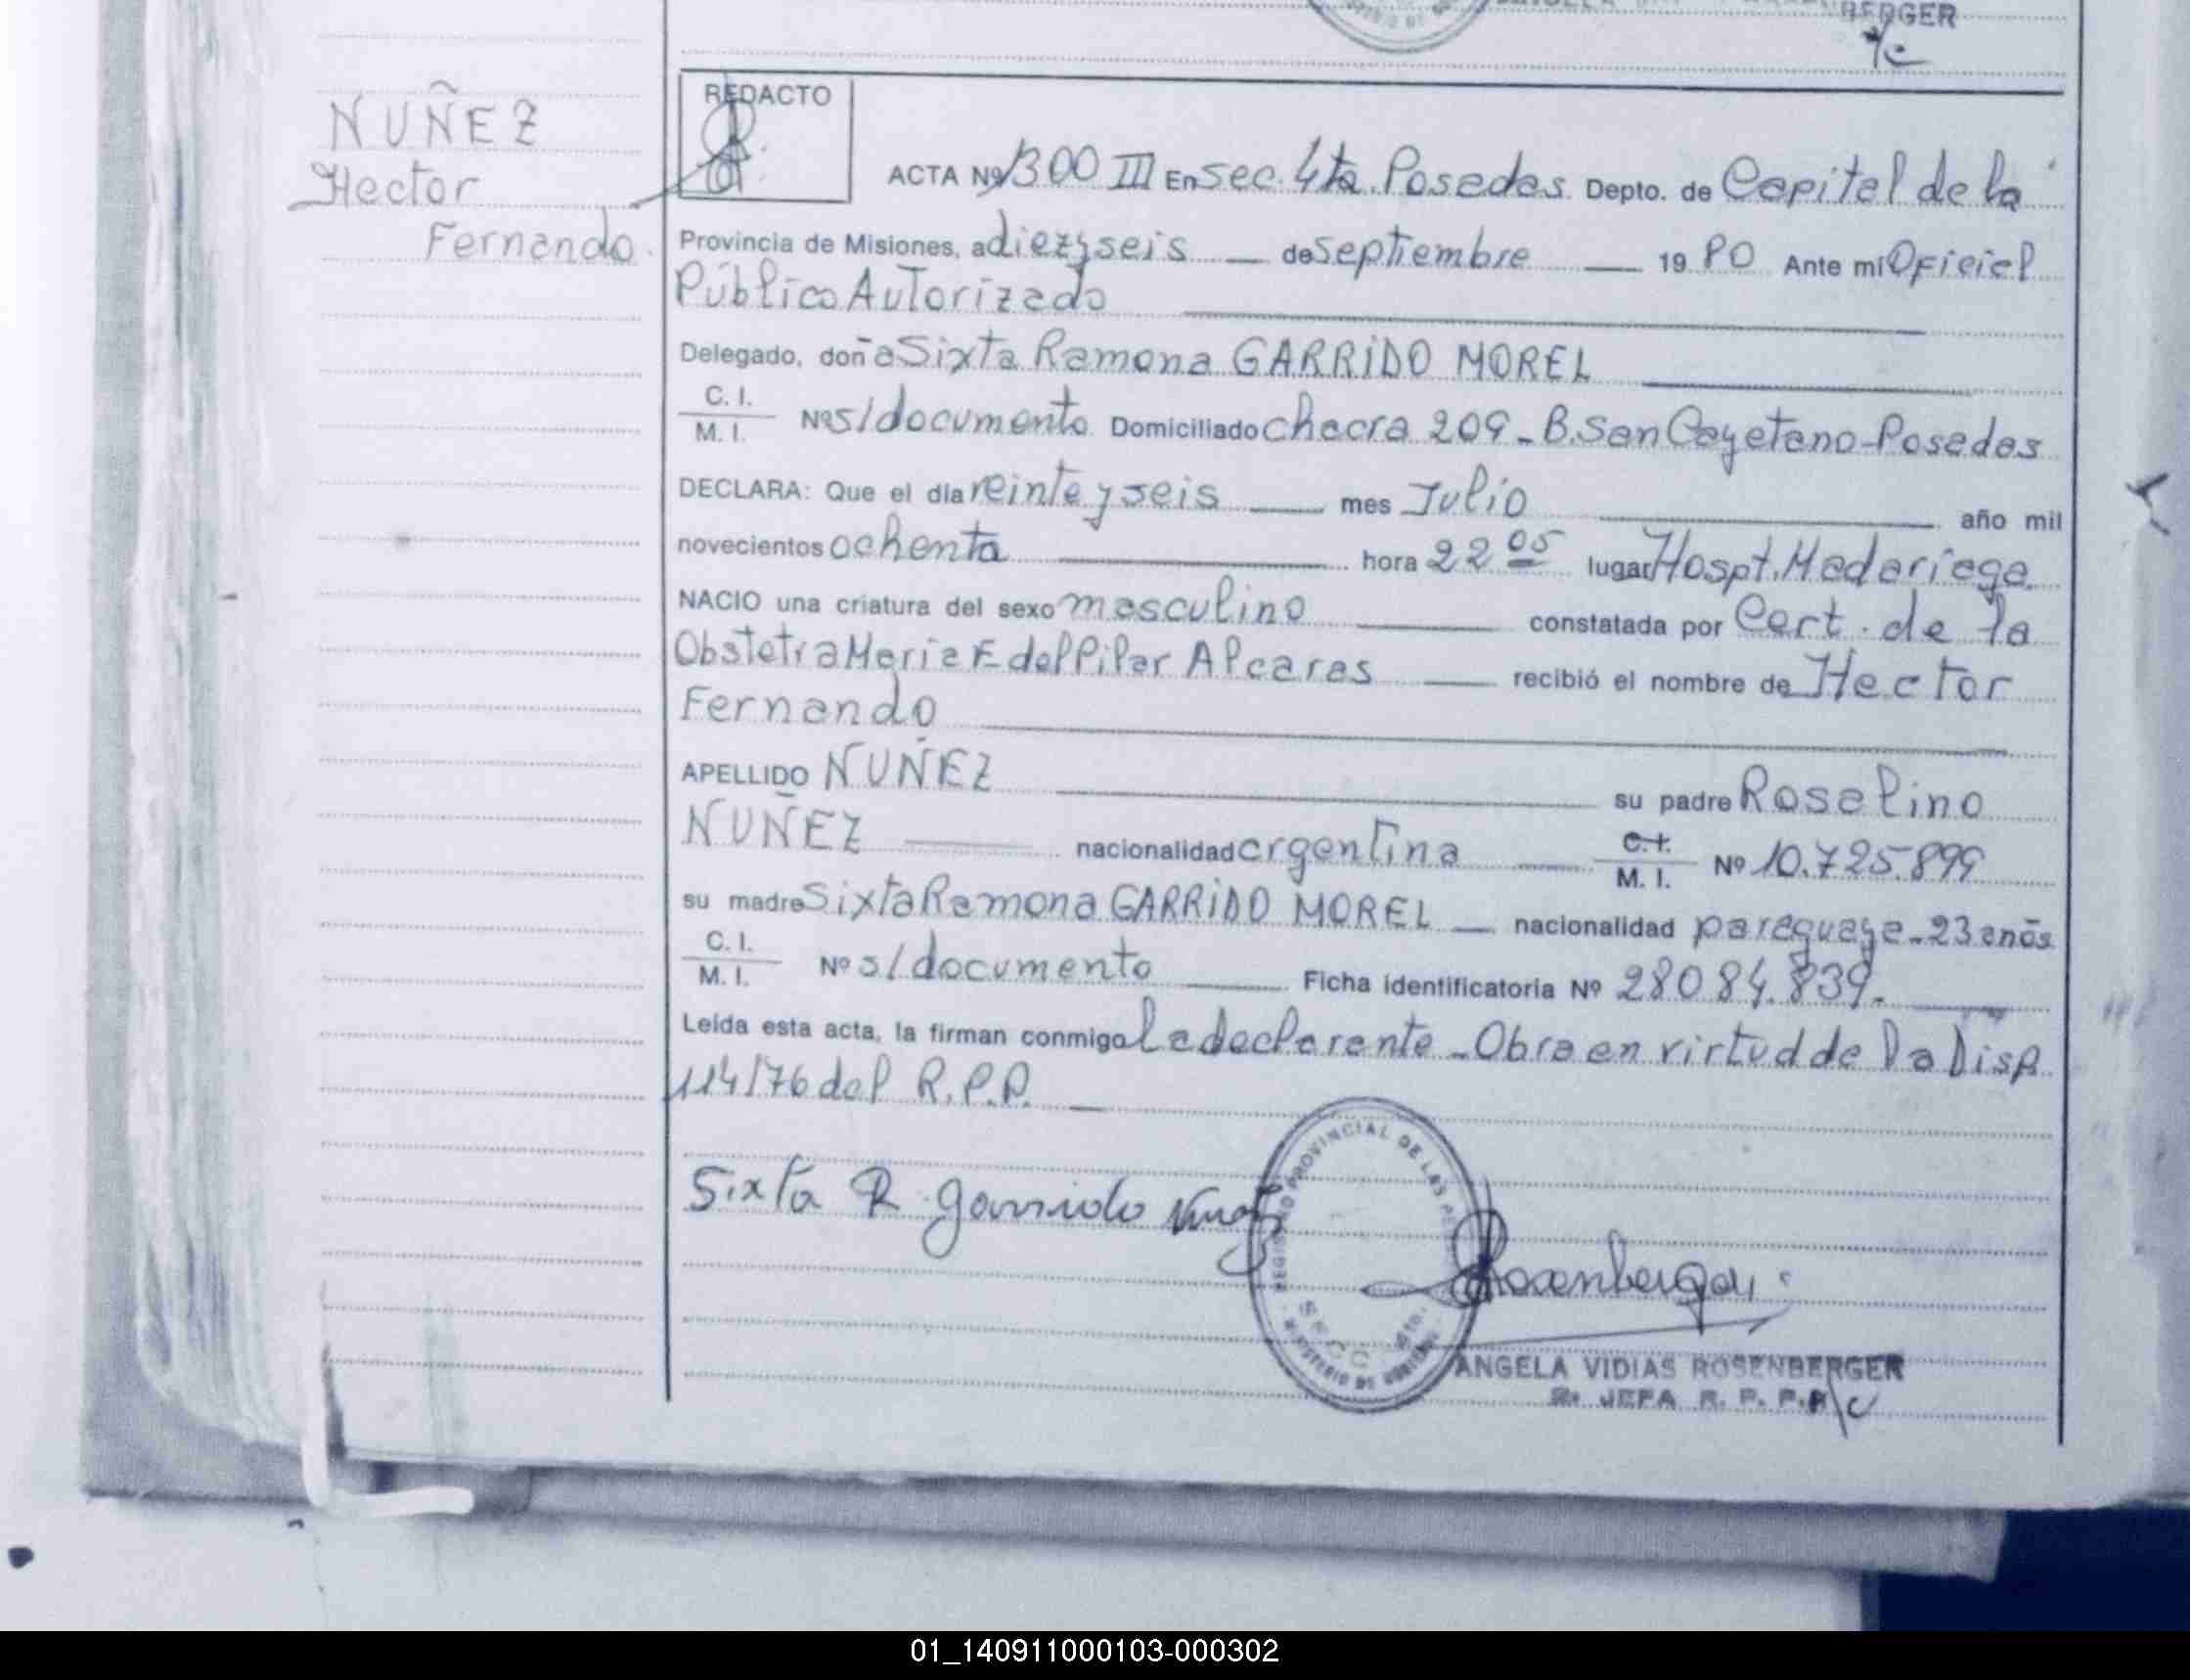 BERGER
NUÑEZ
Hector
Fernando
REDACTO
ACTA Nº 1300 III En Sec. 4ta. Posadas Depto. de Capital de la
Provincia de Misiones, a diez y seis de septiembre 19 80 Ante mí Oficial
Público Autorizado
Delegado, doña Sixta Ramona GARRIDO MOREL
C. I.
M. I. Nº s/documento Domiciliado Chacra 209 - B. San Cayetano - Posadas
DECLARA: Que el día veinte y seis mes Julio año mil
novecientos ochenta hora 22 05 lugar Hospt. Madariaga
NACIO una criatura del sexo masculino constatada por Cert. de la
Obstetra Maria E del Pilar Alcaras recibió el nombre de Hector
Fernando
APELLIDO NUÑEZ su padre Rosalino
NUÑEZ nacionalidad argentina C. I. M. I. Nº 10.725.899
su madre Sixta Ramona GARRIDO MOREL nacionalidad paraguaya - 23 años
C. I.
M. I. Nº s/documento Ficha identificatoria Nº 28084.839.
Leída esta acta, la firman conmigo la declarante - Obra en virtud de la Disp.
114/76 del R.P.P.
Sixta R. Garrido
REGISTRO PROVINCIAL DE LAS PE
SECC. 4ta.
MINISTERIO DE GOBIERNO
Rosenberger
ANGELA VIDIAS ROSENBERGER
JEFA R. P. P.
01_140911000103-000302